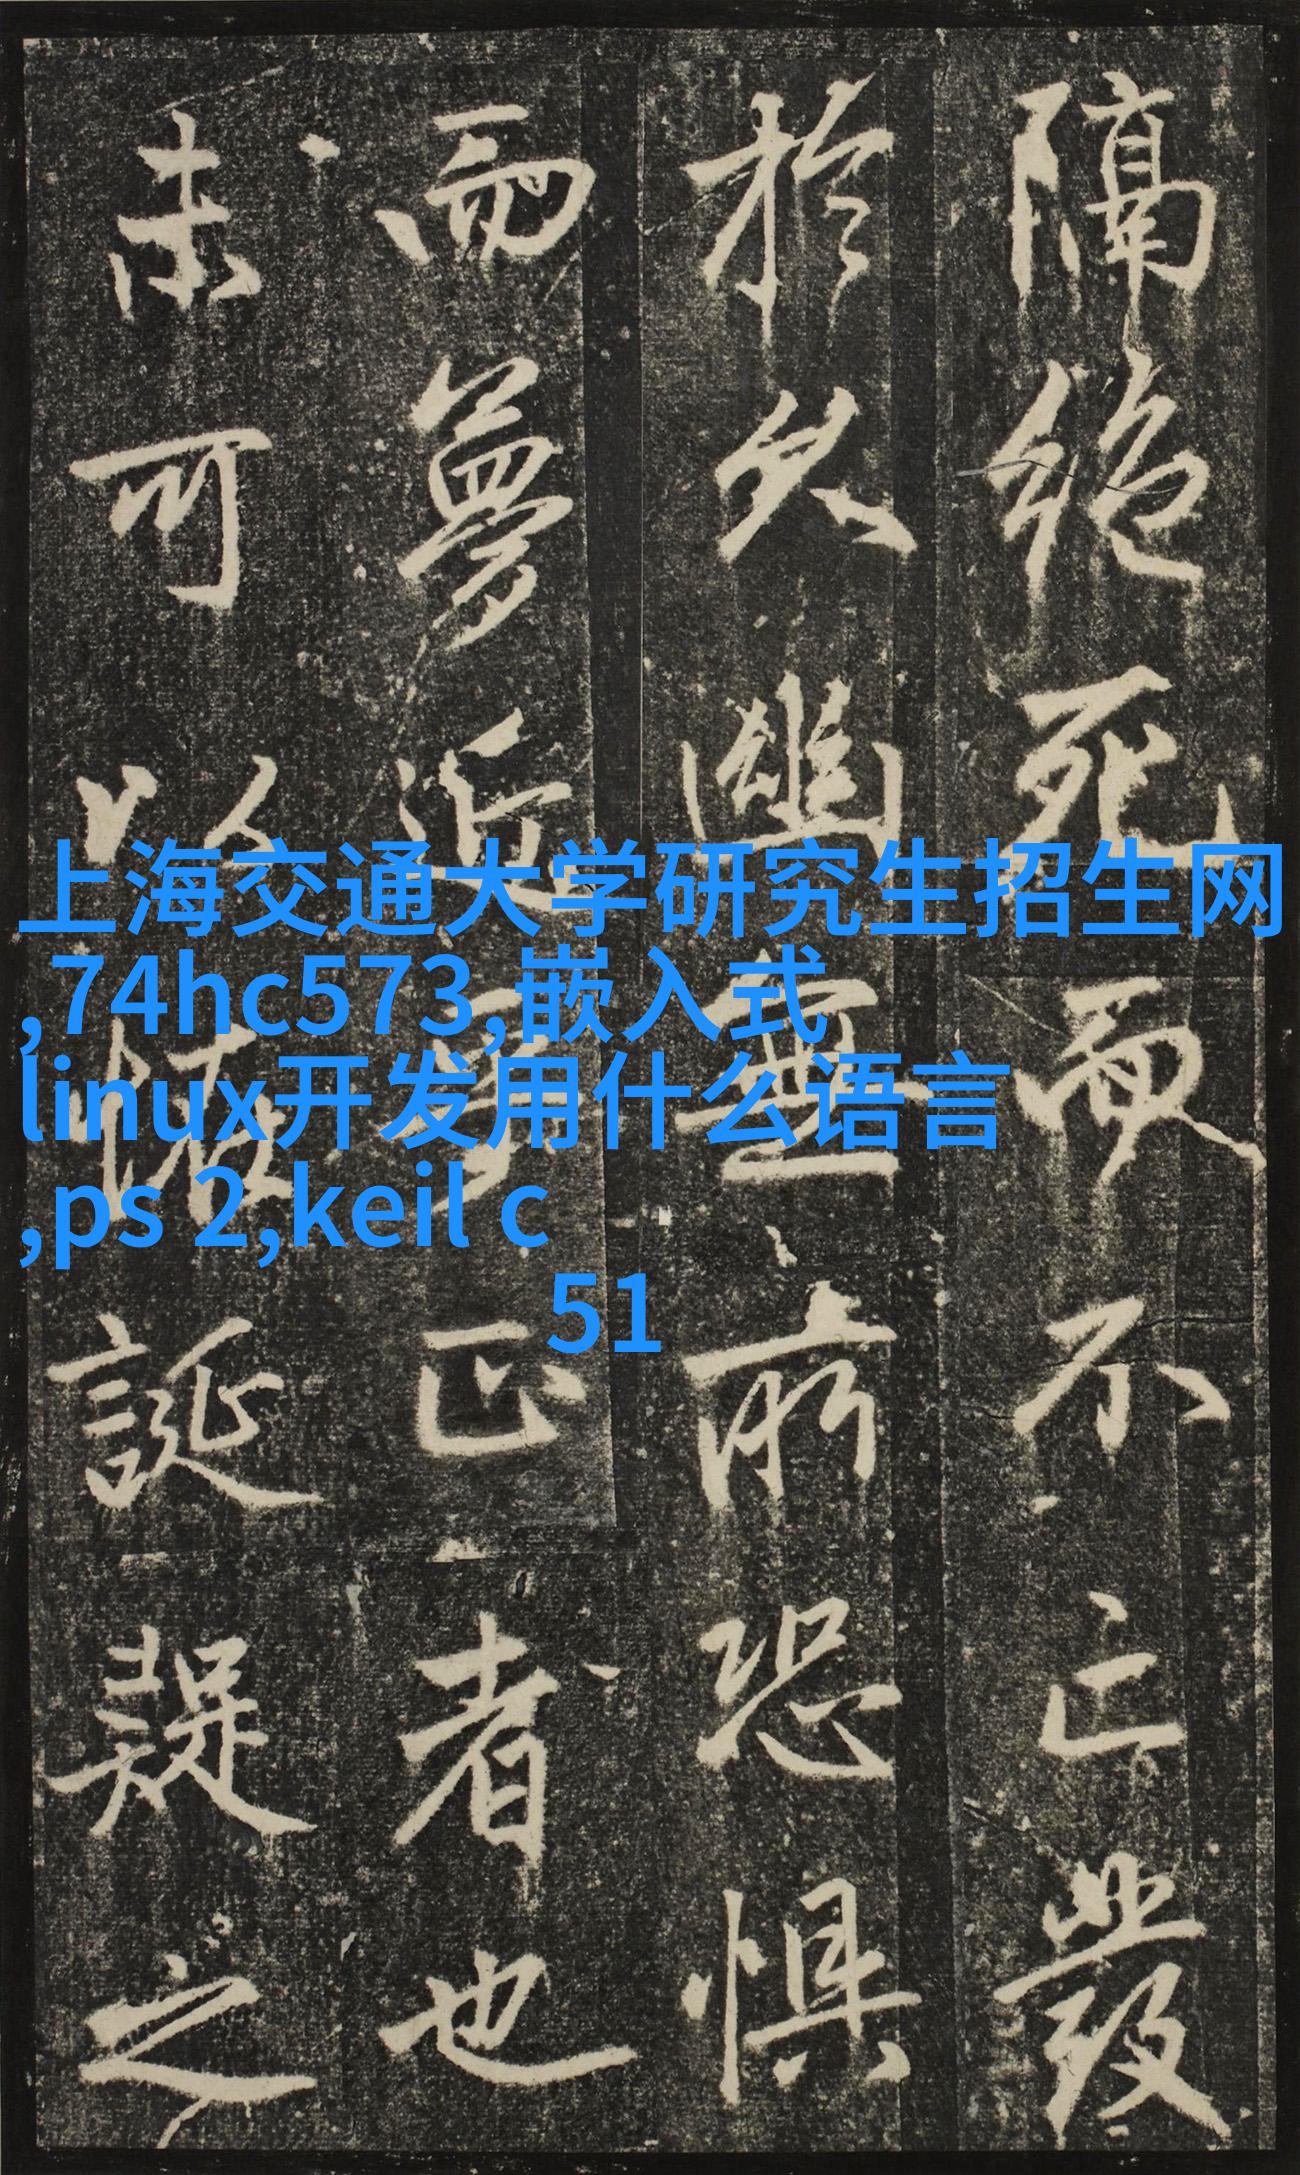 隔絶死而不亡發
於久幽靈所恐惧
而夢近正者也
未可以誕疑之
上海交通大学研究生招生网
,74hc573,嵌入式
linux开发用什么语言
,ps 2,keil c
51